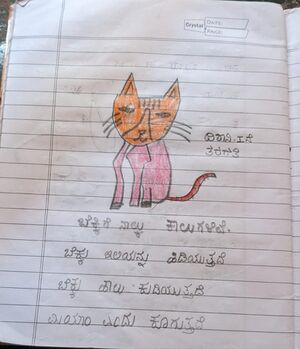 Crystal
DATE:
PAGE:
ತರಗತಿ
ಬೆಕ್ಕಿಗೆ ನಾಲ್ಕು ಕಾಲುಗಳಿವೆ.
ಬೆಕ್ಕು ಇಲಿಯನ್ನು ಹಿಡಿಯುತ್ತದೆ
ಬೆಕ್ಕು ಹಾಲು ಕುಡಿಯುತ್ತದೆ
ಮಿಯಾಂ ಎಂದು ಕೂಗುತ್ತದೆ